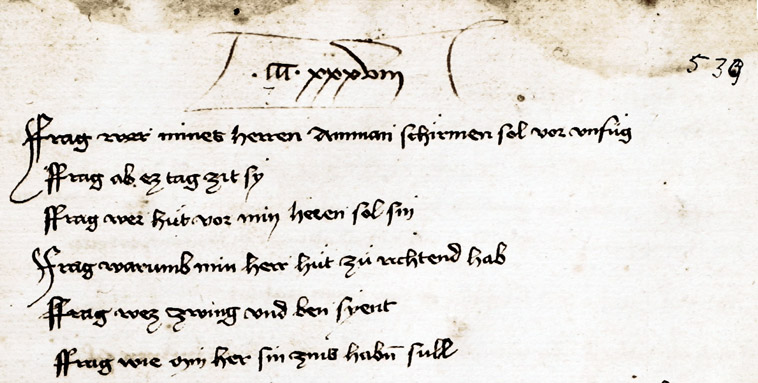 . iiii . xxxviii
539
Ffrag wer mines herren Amman schirmen sol vor vnfůg
Ffrag ab ez tag zit sy
Ffrag wer hüt vor min heren sol sin
Ffrag warumb min herr hüt zů richtend hab
Ffrag wez zwing vnd ben syent
Ffrag wie min her sin zins habn̄ sull